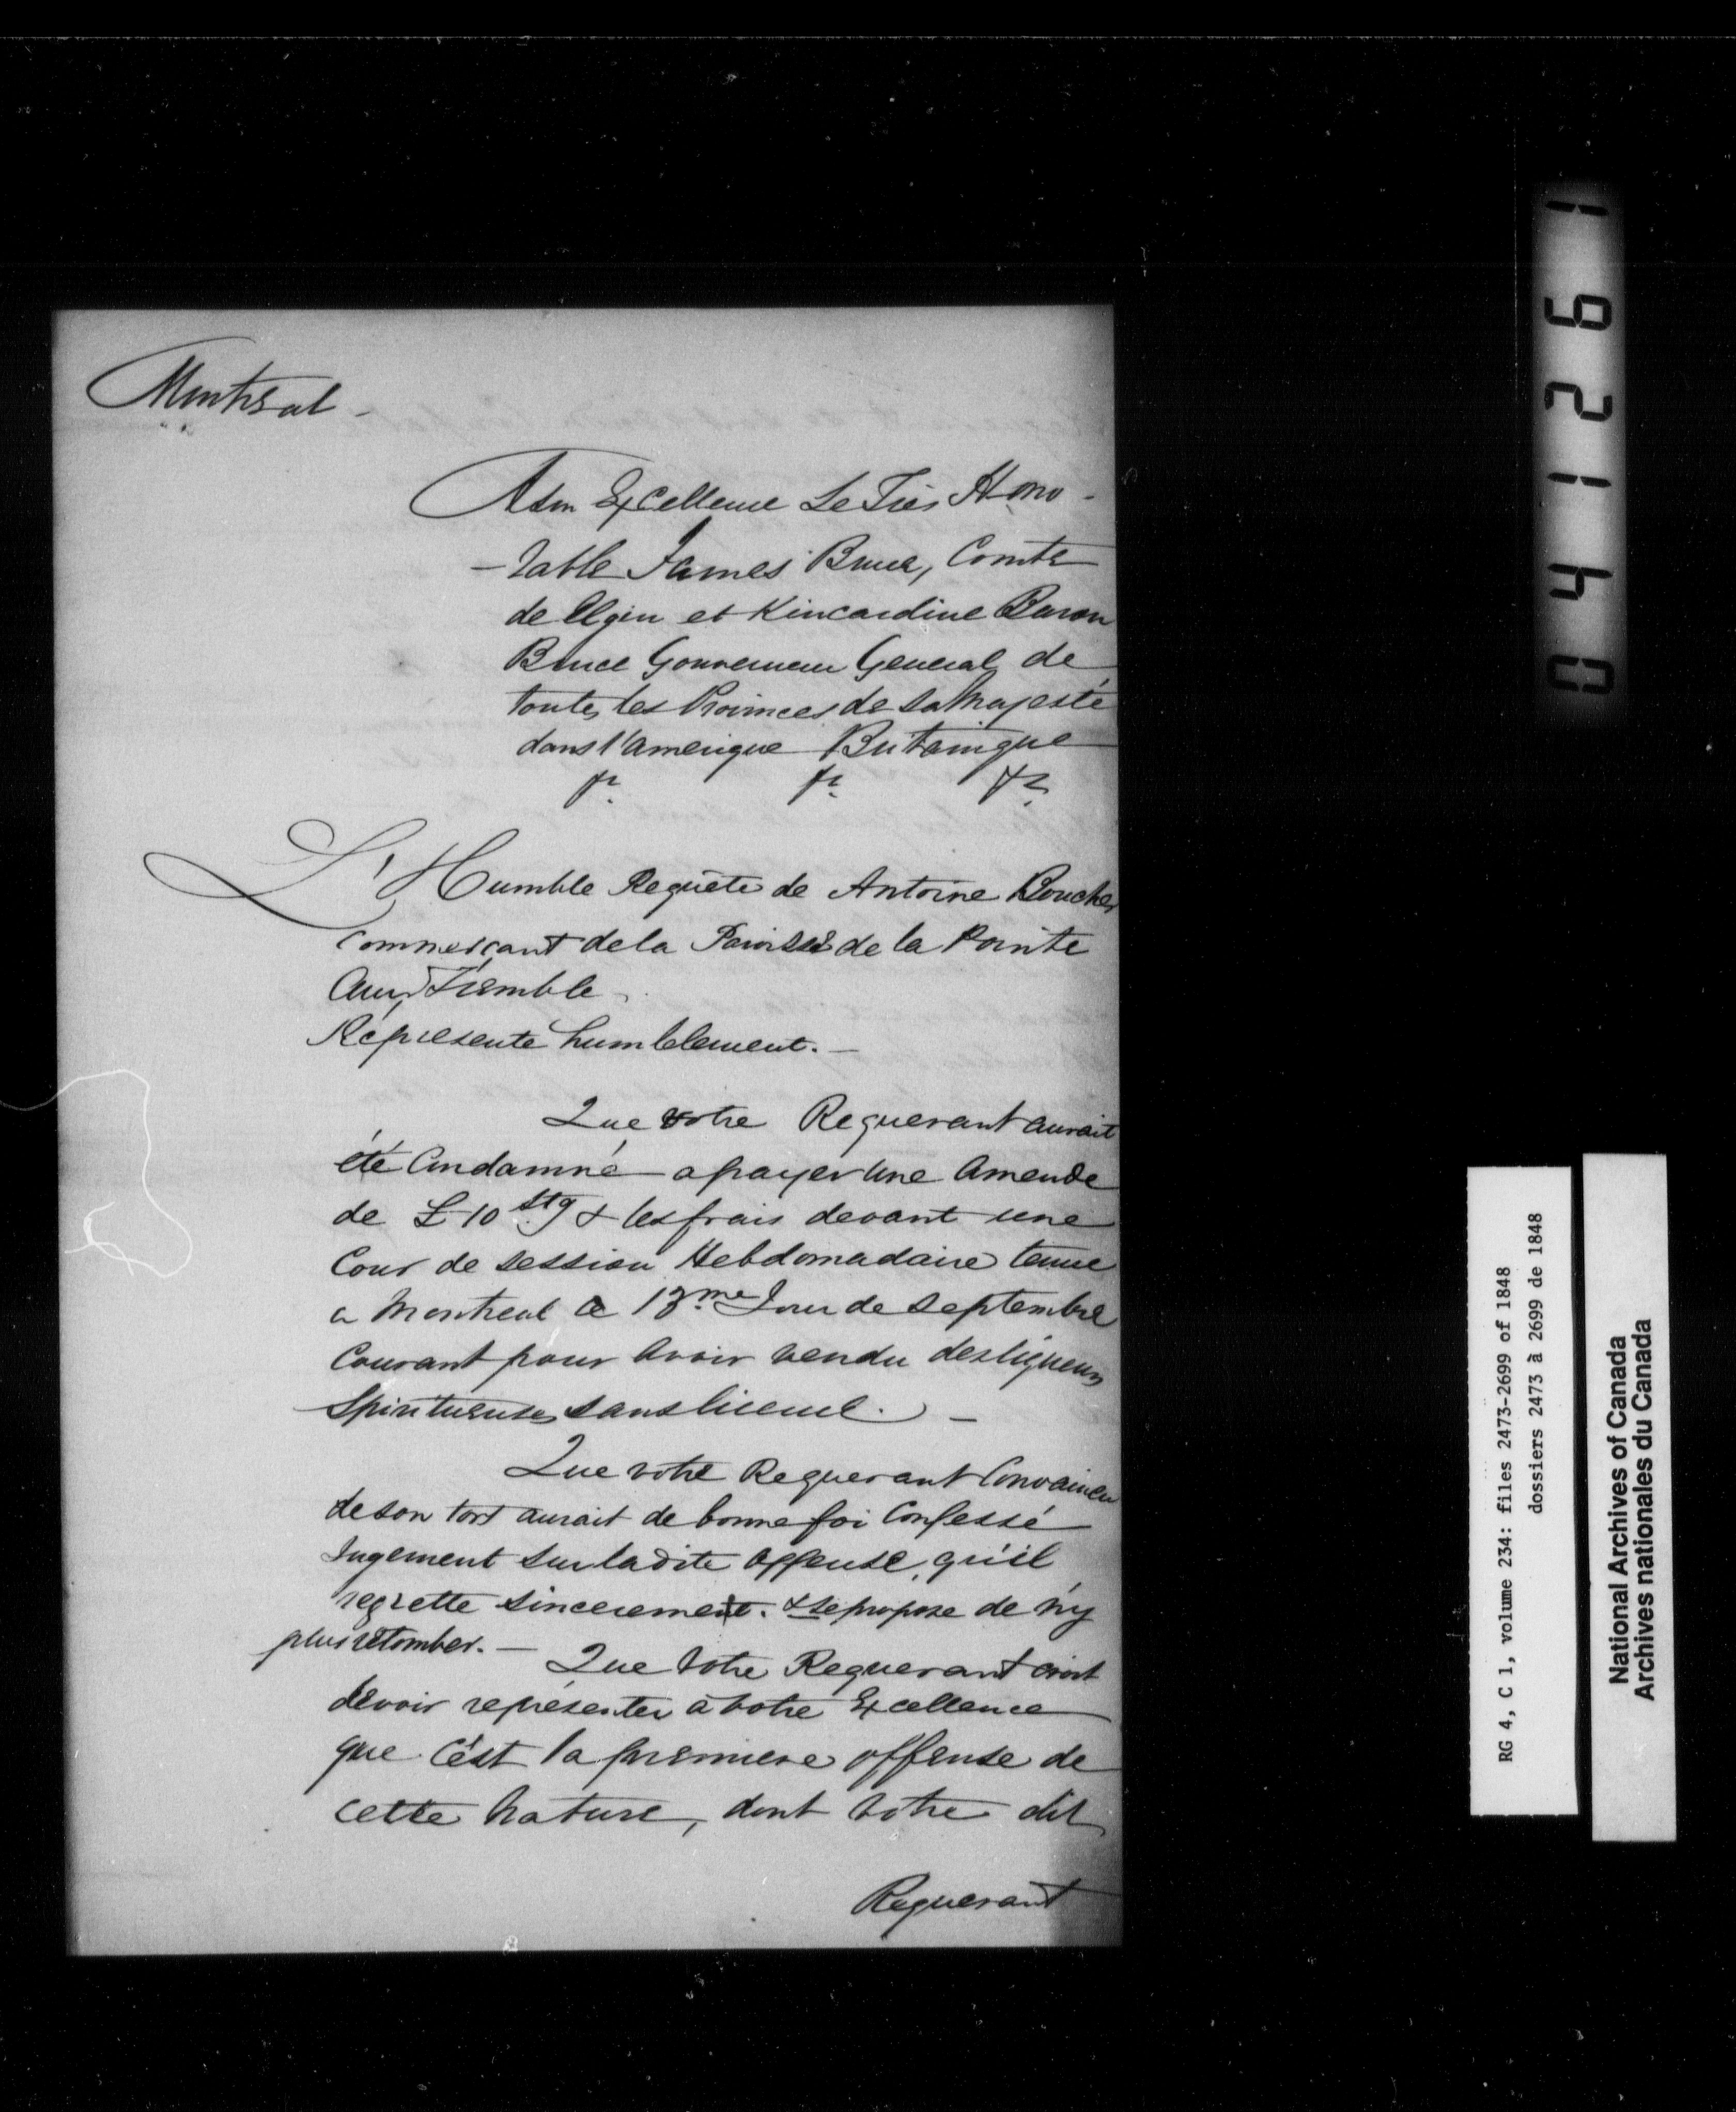 Montreal -
A Son Excellence Le Très Hono-
-rable James Bruce, Comte
de Elgin et Kincardine Baron
Bruce Gouverneur General de
toutes les Provinces de Sa Majesté
dans l'amerique Britannique
&c. &c. &c.
L'Humble Requête de Antoine Boucher
Commerçant de la Paroisse de la Pointe
Aux Tremble
Réprésente humblement. —
Que votre Requerant aurait
été Condamné a payer une Amende
de £10 Stg & les frais devant une
Cour de session Hebdomadaire tenue
a Montreal le 13me Jour de Septembre
Courant pour Avoir vendu des liqueurs
Spiritueuses sans licence. —
Que votre Requerant Convaincu
de son tort aurait de bonne foi Confessé
Jugement sur la dite Offense, qu'il
regrette sincerement. & se propose de n'y
plus retomber. — Que Votre Requerant croit
devoir représenter à Votre Excellence
que c'ést la premiere offense de
cette Nature, dont Votre dit
Requerant
041261
RG 4, C 1, volume 234: files 2473-2699 of 1848
dossiers 2473 à 2699 de 1848
National Archives of Canada
Archives nationales du Canada